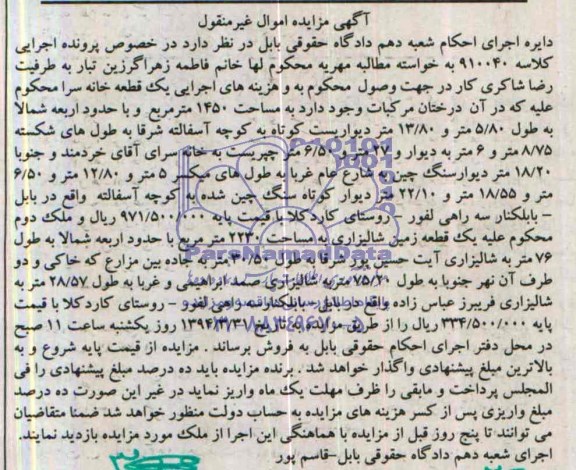 آگهی مزایده اموال غیرمنقول
دایره اجرای احکام شعبه دهم دادگاه حقوقی بابل در نظر دارد در خصوص پرونده اجرایی
کلاسه ۹۱۰۰۴۰ به خواسته مطالبه مهریه محکوم لها خانم فاطمه زهراگرزین تبار به طرفیت
رضا شاکری کار در جهت وصول محکوم به و هزینه های اجرایی یک قطعه خانه سرا محکوم
علیه که در آن درختان مرکبات وجود دارد به مساحت ۱۴۵۰ مترمربع و با حدود اربعه شمالا
به طول ۵/۸۰ متر و ۱۳/۸۰ متر دیواربست کوتاه به کوچه آسفالته شرقا به طول های شکسته
۸/۷۵ متر و ۶ متر به دیوار و ۲۷ متر و ۶/۵ متر چپربست به خانه سرای آقای خردمند و جنوبا
۱۸/۲۰ متر دیوارسنگ چین به شارع عام غربا به طول های میکسر ۵ متر و ۱۲/۸۰ متر و ۶/۵۰
متر و ۱۸/۵۵ متر و ۲۲/۱۰ متر دیوار کوتاه سنگ چین شده به کوچه آسفالته واقع در بابل
– بابلکنار سه راهی لفور – روستای کاردکلا با قیمت پایه ۹۷۱/۵۰۰/۰۰۰ ریال و ملک دوم
محکوم علیه یک قطعه زمین شالیزاری به مساحت ۲۲۳۰ متر مربع با حدود اربعه شمالا به طول
۷۶ متر به شالیزاری آیت حسین پور شرقا به طول متر به جاده بین مزارع که خاکی و دو
طرف آن نهر جنوبا به طول ۷۵/۲۰ متر به شالیزاری صمد ابراهیمی و غربا به طول ۲۸/۵۷ متر به
شالیزاری فریبرز عباس زاده واقع در بابل – بابلکنار سه راهی لفور – روستای کاردکلا با قیمت
پایه ۳۳۴/۵۰۰/۰۰۰ ریال را از طریق مزایده به تاریخ ۱۳۹۴/۳/۳۱ روز یکشنبه ساعت ۱۱ صبح
در محل دفتر اجرای احکام حقوقی بابل به فروش برساند . مزایده از قیمت پایه شروع و به
بالاترین مبلغ پیشنهادی واگذار خواهد شد . برنده مزایده باید ده درصد مبلغ پیشنهادی را فی
المجلس پرداخت و مابقی را ظرف مهلت یک ماه واریز نماید در غیر این صورت ده درصد
مبلغ واریزی پس از کسر هزینه های مزایده به حساب دولت منظور خواهد شد ضمنا متقاضیان
می توانند تا پنج روز قبل از مزایده با هماهنگی این اجرا از ملک مورد مزایده بازدید نمایند.
اجرای شعبه دهم دادگاه حقوقی بابل-قاسم پور
ParsNamadData